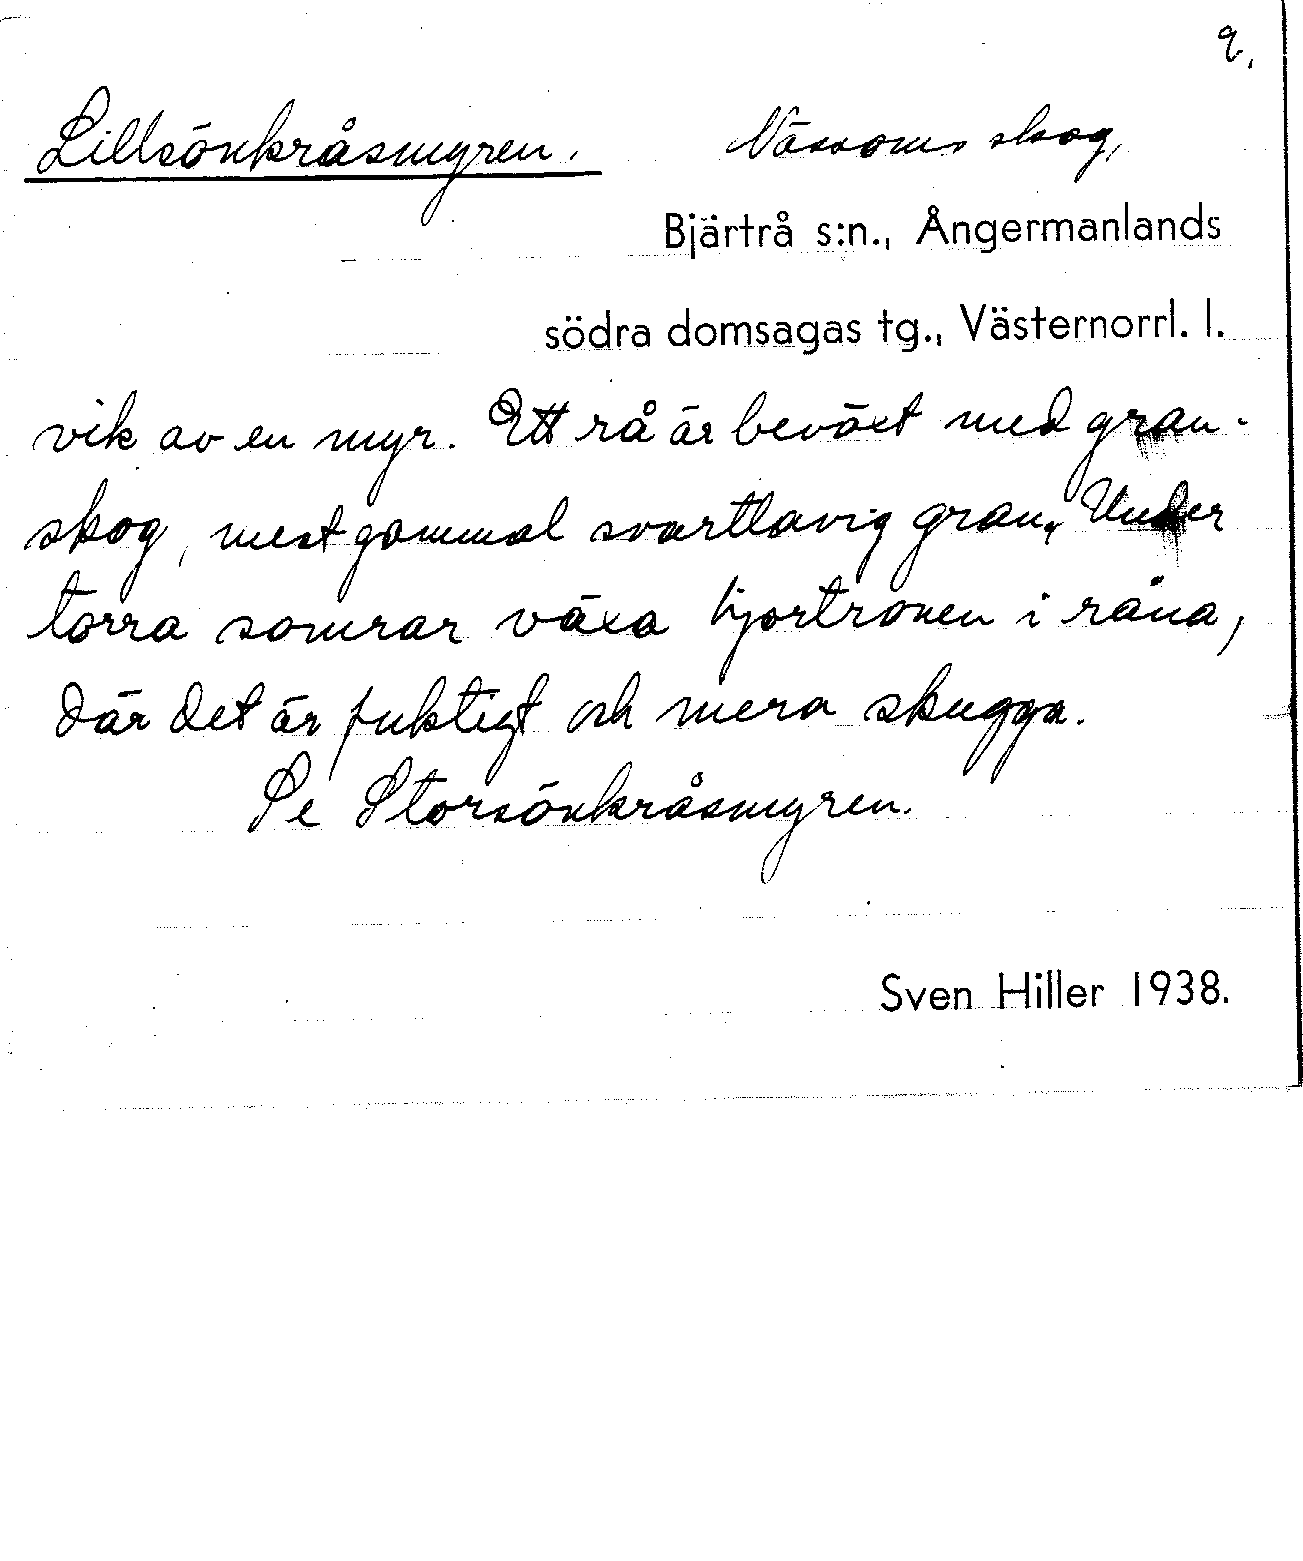 2.
Lillsönkråsmyren. Nässoms skog,
Bjärtrå s:n., Ångermanlands
södra domsagas tg., Västernorrl. l.
vik av en myr. Ett rå är beväxt med gran-
skog, mest gammal svartlavig gran. Under
torra somrar växa hjortronen i råna,
där det är fuktigt och mera skugga.
Se Storsönkråsmyren.
Sven Hiller 1938.